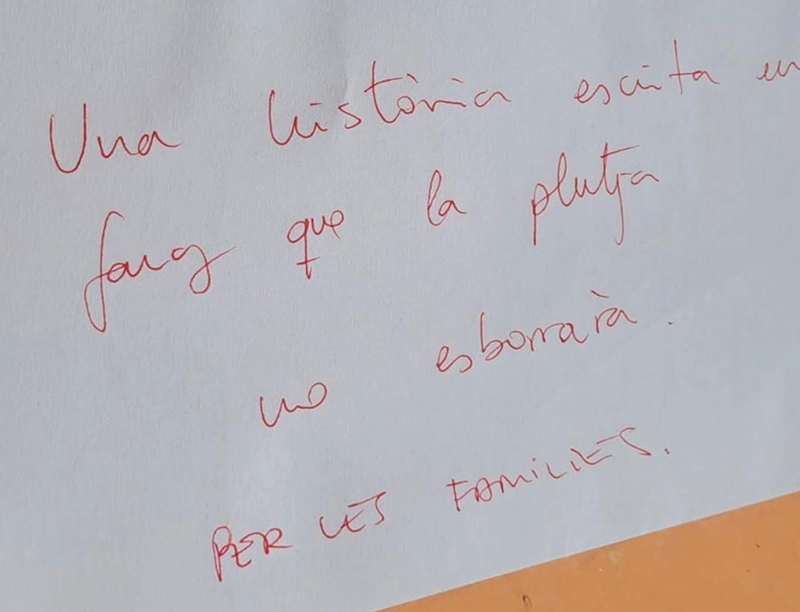 Una història escrita en
fang que la plutja
no esborrarà.
PER LES FAMILIES.